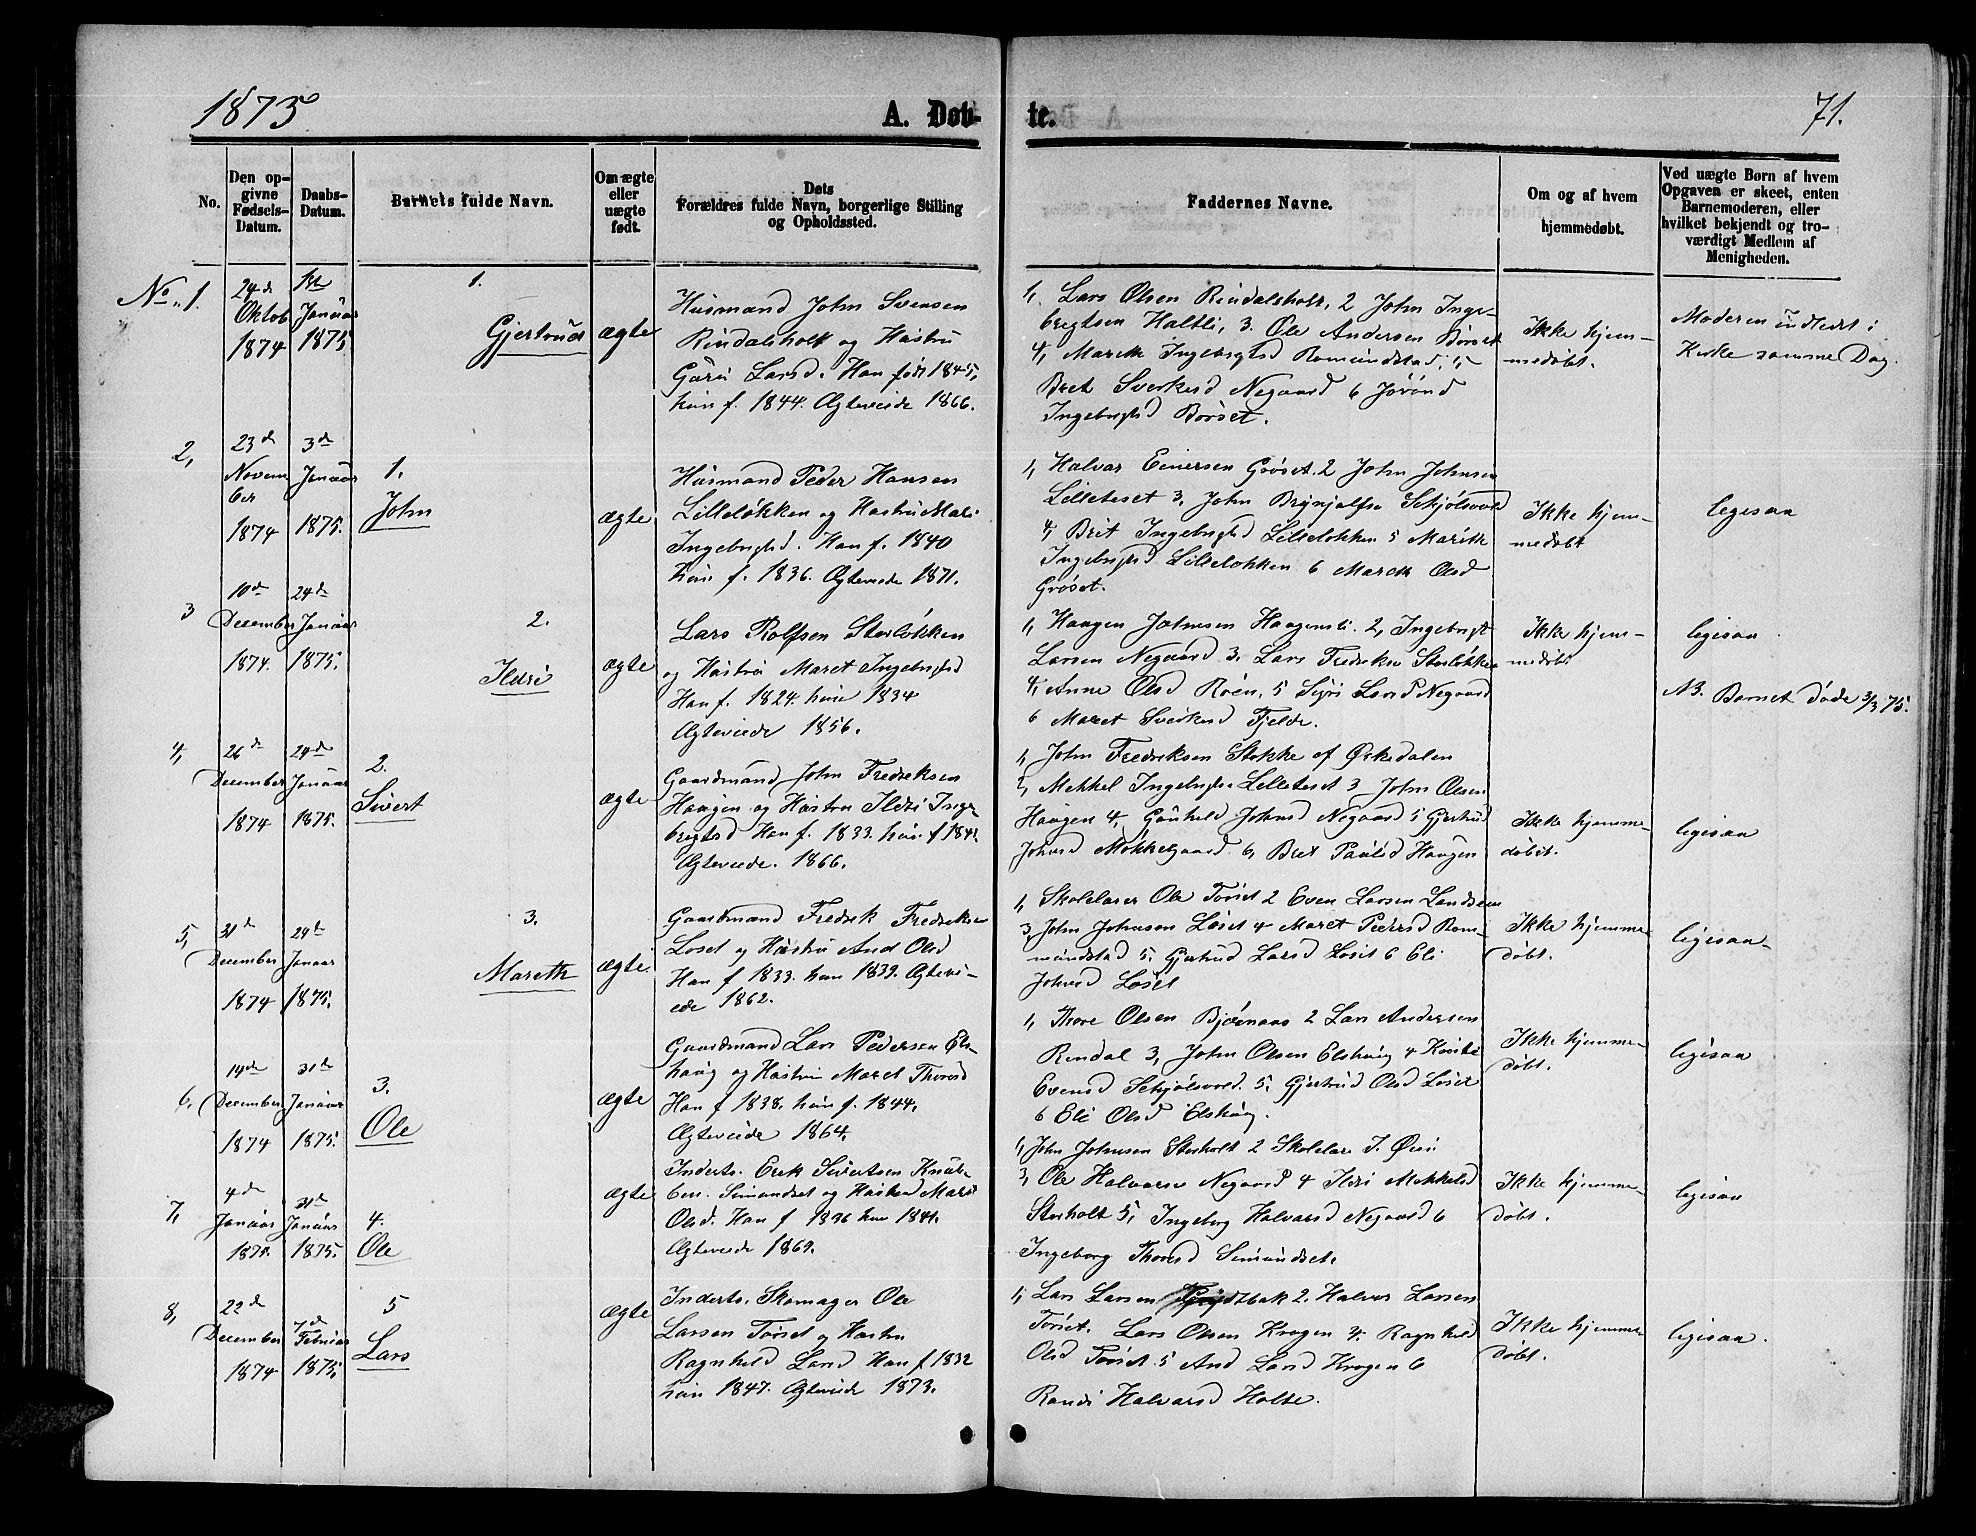 1875
A. Døb-
te.
71.
No.
Den op-
givne
Fødsels-
Datum.
Daabs-
Datum.
Barnets fulde Navn.
Om ægte
eller
uægte
født.
Dets
Forældres fulde Navn, borgerlige Stilling
og Opholdssted.
Faddernes Navne.
Om og af hvem
hjemmedøbt.
Ved uægte Børn af hvem
Opgaven er skeet, enten
Barnemoderen, eller
hvilket bekjendt og tro-
værdigt Medlem af
Menigheden.
No. 1.
24de
Oktob
1874
1ste
Januar
1875
1.
Gjertrud
ægte
Husmand John Svensen
Rindalsholt og Hustru
Guru Larsd. Han født 1845,
hun f. 1844. Ægteviede 1866.
1, Lars Olsen Rindalsholt, 2 John Inge-
bregtsen Haltli, 3. Ole Andersen Børset
4, Mareth Ingebrigtsd Romundstad, 5
Bret Sverkesd Negaard 6 Jorond
Ingebrigtsd Børset.
Ikke hjem-
medøbt.
Moderen indledet i
Kirke samme Dag.
2,
23de
Novem
ber
1874
3de
Januar
1875.
1.
John
ægte
Husmand Peder Hansen
Lilleløkken og Hustru Mari
Ingebrigtsd. Han f. 1840
hun f. 1836. Ægteviede 1871.
1, Halvar Einersen Grøset. 2 John Johnsen
Lilleteset 3, John Brynjolfsen Schjølsvold
4, Brit Ingebrigtsd Lilleløkken 5 Marith
Ingebrigtsd Lilleløkken 6 Mareth Olsd
Grøset.
Ikke hjem-
medøbt
ligesaa
3
10de
December
1874.
24de
Januar
1875.
2.
Ildri
ægte
Lars Rolfsen Storløkken
og Hustru Maret Ingebrigtsd
Han f. 1824. hun 1834
Ægteviede 1856.
1, Haagen Johnsen Haagensli. 2, Ingebrigt
Larsen Negaard 3. Lars Fredriksen Storløkken
4, Anne Olsd Røen, 5 Sigri Larsd Negaard
6 Maret Sverkesd Fjelde.
Ikke hjem-
medøbt
ligesaa
NB. Barnet døde 3/3 75.
4,
26de
December
1874
24de
Januar
1875.
2.
Sivert
ægte
Gaardmand John Fredriksen
Haugen og Hustru Ildri Inge-
bregtsd Han f. 1833. hun f 1841.
Ægteviede. 1866.
1, John Fredriksen Stokke af Ørkedalen
2, Mekkel Ingebrigtsen Lilleteset 3 John Olsen
Haugen 4, Gunhild Johnsd Negaard 5 Gjertrud
Johnsd Mokkelgaard. 6, Bret Paulsd Haugen
Ikke hjemme-
døbt.
ligesaa
5,
31de
December
1874
24de
Januar
1875.
3.
Mareth
ægte
Gaardmand Fredrik Fredriksen
Løset og Hustru And Olsd
Han f 1833. hun 1839. Ægtevi-
ede 1862.
1, Skolelærer Ole Torset 2 Even Larsen Landsem
3, John Johnsen Løset 4 Maret Pedersd Rom-
mundstad 5, Gjertrud Larsd Løset 6 Eli
Johnsd Løset
Ikke hjemme-
døbt.
ligesaa
6.
14de
December
1874
31de
Januar
1875.
3.
Ole
ægte
Gaardmand Lars Pedersen Els-
haug og Hustru Maret Thoresd
Han f 1838. hun f. 1844.
Ægteviede 1864.
1, Thore Olsen Bjørnaas 2 Lars Andersen
Rindal 3, John Olsen Elshaug 4 Kristi
Evensd Schjølsvold. 5. Gjertrud Olsd Løset
6 Eli Olsd Elshaug.
Ikke hjemme-
døbt.
ligesaa
7,
4de
Januar
1875.
31de
Januar
1875.
4.
Ole
ægte
Inderst. Erik Sivertsen
Simundset og Hustru Mari
Olsd. Han f 1836 hun 1841.
Ægteviede 1869.
1, John Johnsen Storholt 2 Skolelær
3, Ole Halvarsen Negaard 4 Ildri Mekkelsd
Storholt 5, Ingeborg Halvarsd Negaard 6
Ingeborg Thoresd Simundset.
Ikke hjemme-
døbt.
ligesaa
8,
22de
December
1874
7de
Februar
1875.
5
Lars
ægte
Inderst. Skomager Ole
Larsen Torset og Hustru
Ragnhild Larsd Han f 1832
hun 1847. Ægteviede 1873.
1, Lars Larsen 2. Halvar Larsen
Torset. Lars Olsen Krogen 4. Ragnhild
Olsd Torset 5 And Larsd Krogen 6
Randi Halvarsd Holte.
Ikke hjemme-
døbt.
ligesaa.